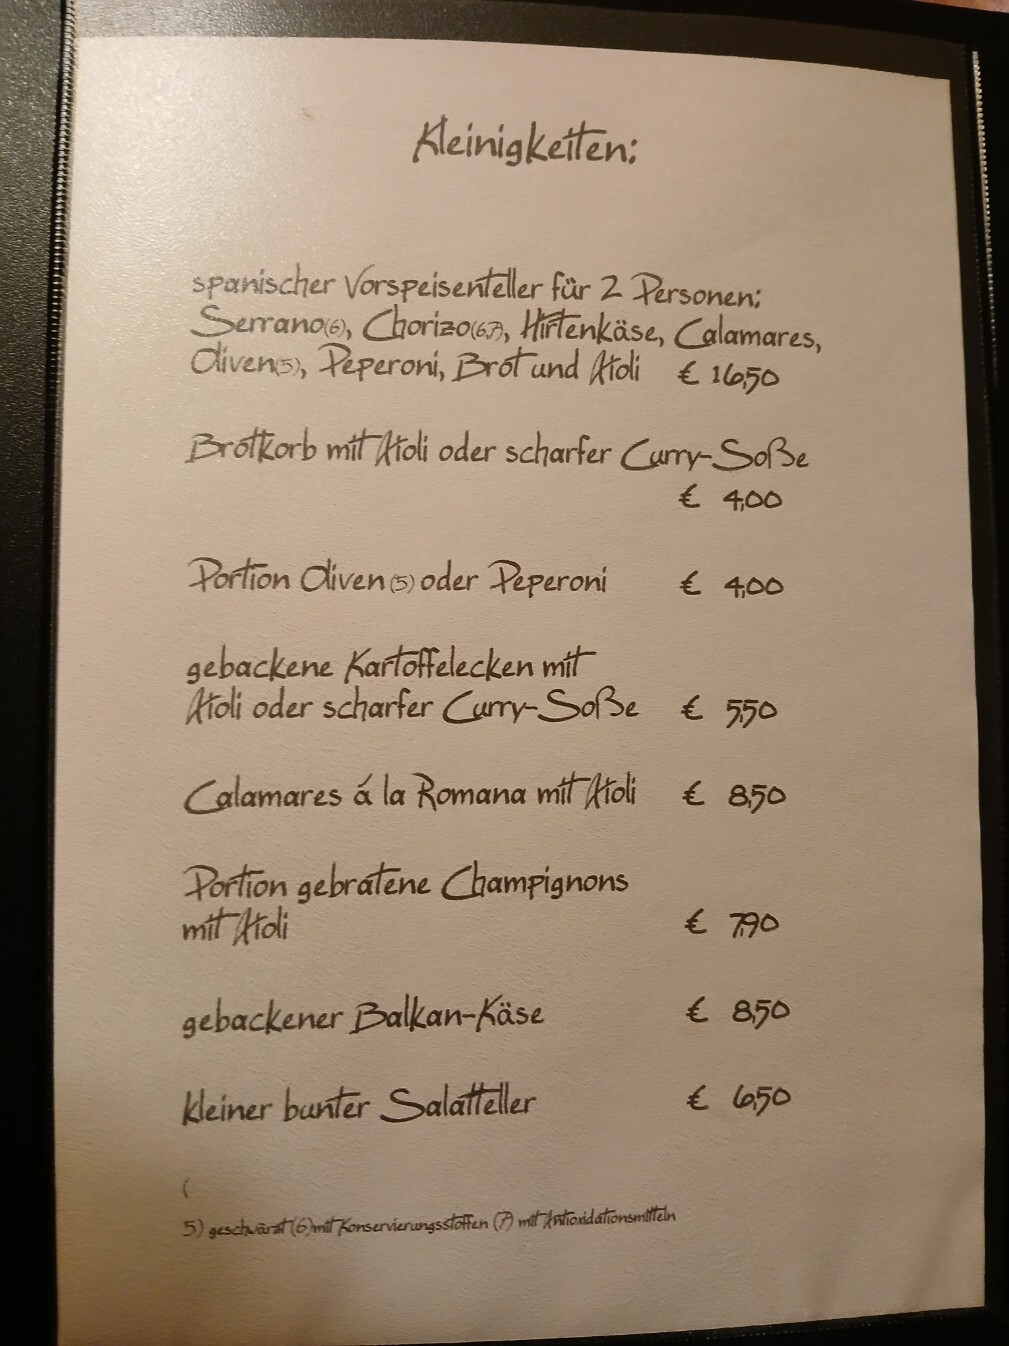 Kleinigkeiten:
spanischer Vorspeisenteller für 2 Personen:
Serrano(6), Chorizo(6,7), Hirtenkäse, Calamares,
Oliven(5), Peperoni, Brot und Aioli € 16,50
Brotkorb mit Aioli oder scharfer Curry-Soße
€ 4,00
Portion Oliven (5) oder Peperoni € 4,00
gebackene Kartoffelecken mit
Aioli oder scharfer Curry-Soße € 5,50
Calamares á la Romana mit Aioli € 8,50
Portion gebratene Champignons
mit Aioli € 7,90
gebackener Balkan-Käse € 8,50
kleiner bunter Salatteller € 6,50
(
5) geschwärzt (6)mit Konservierungsstoffen (7) mit Antioxidationsmitteln